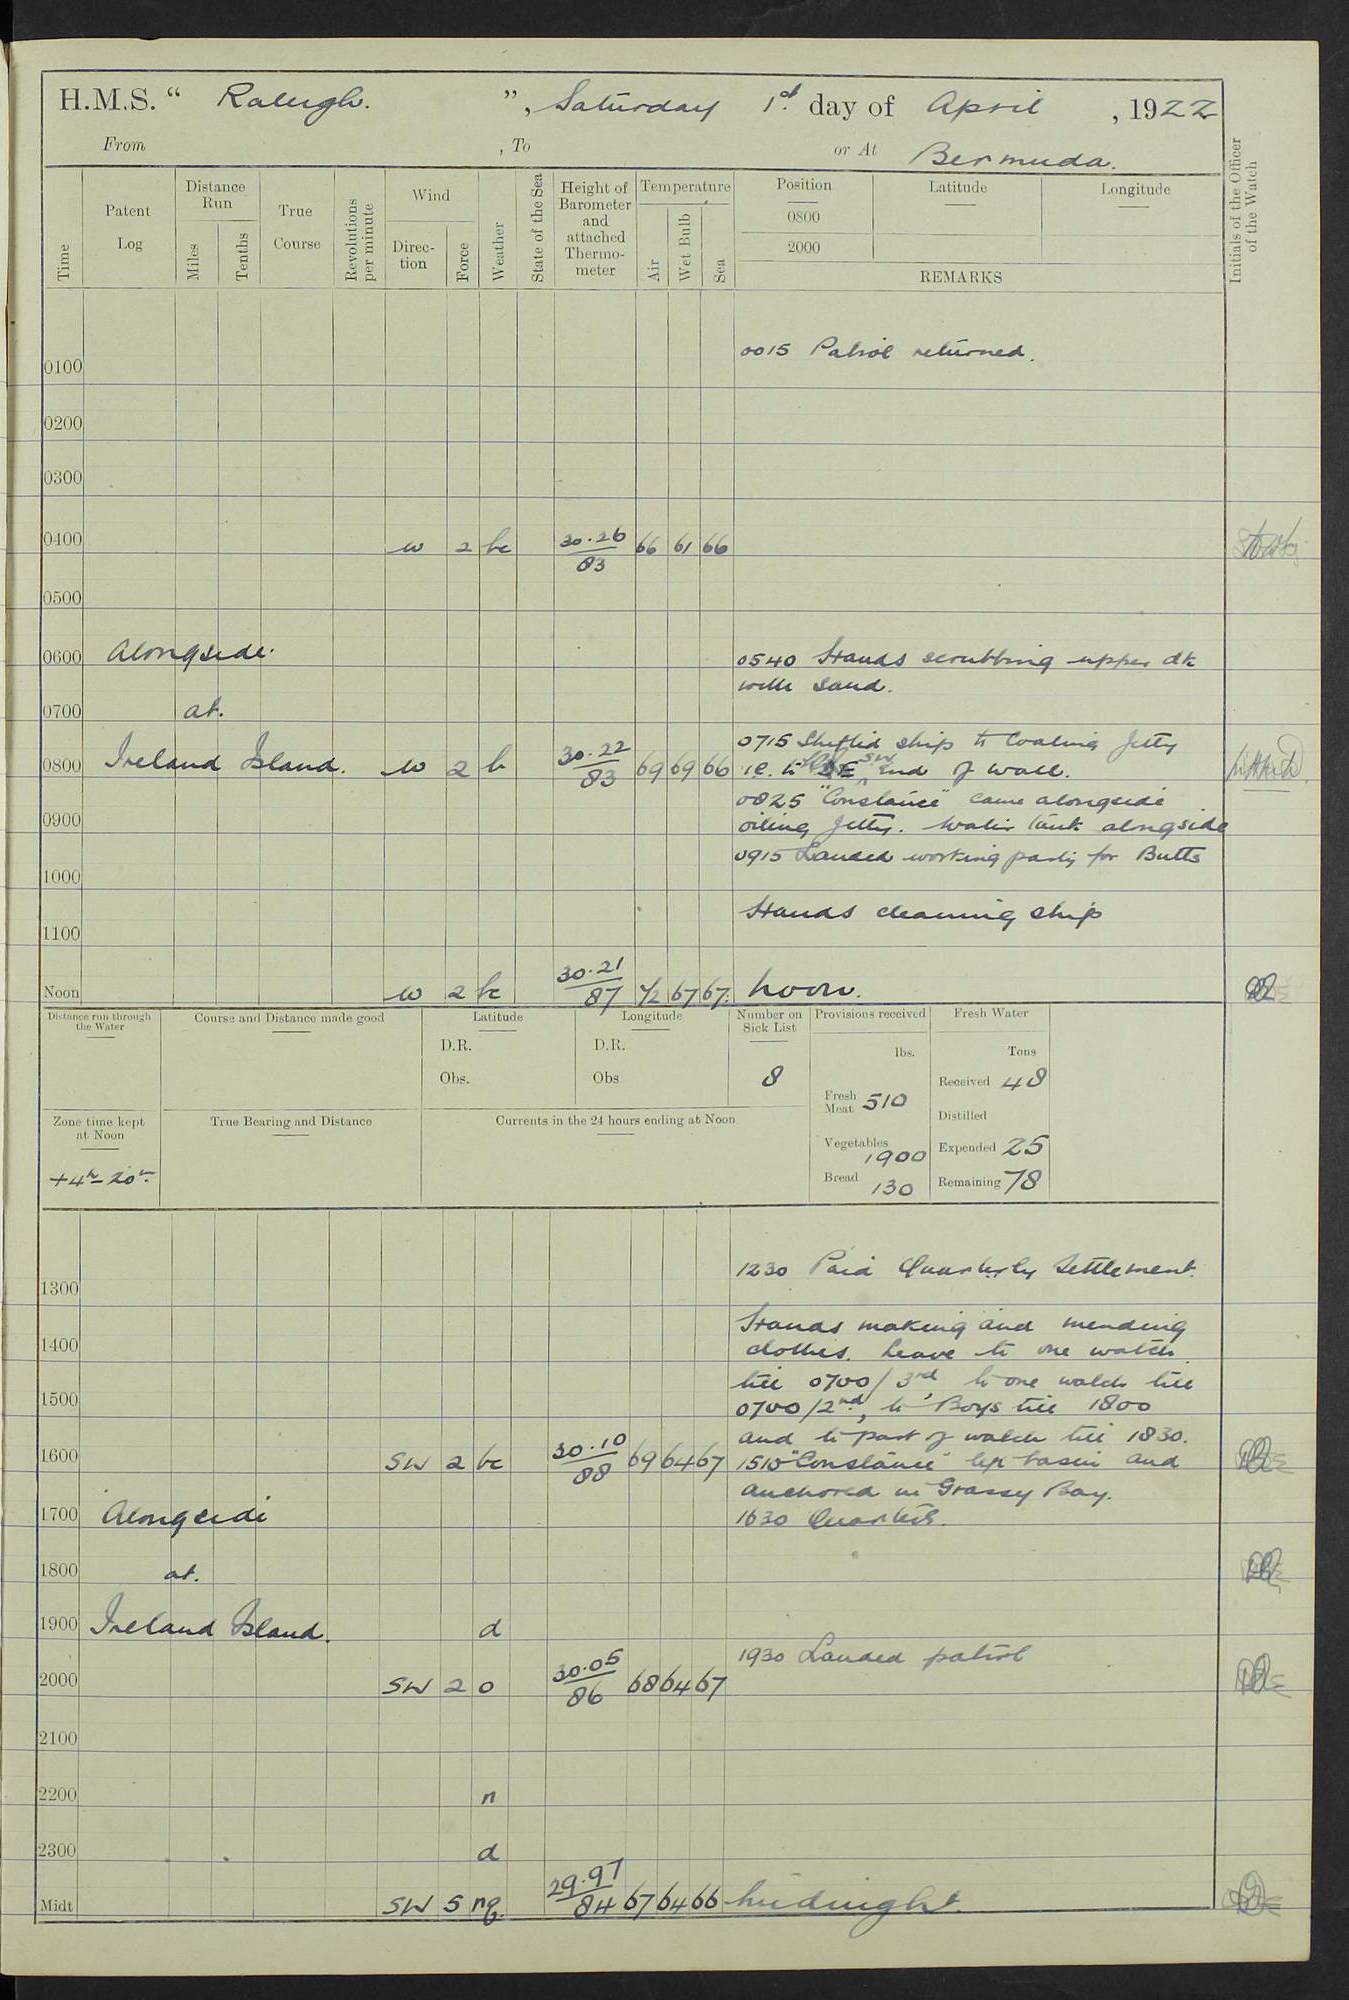 H.M.S. “ Raleigh. ”, Saturday 1st day of April , 1922
From , To or At Bermuda.
Time
Patent Log
Distance Run
Miles
Tenths
True Course
Revolutions per minute
Wind
Direc-tion
Force
Weather
State of the Sea
Height of Barometer and attached Thermo-meter
Temperature
Air
Wet Bulb
Sea
Position
0800
2000
Latitude
Longitude
REMARKS
Initials of the Officer of the Watch
0015 Patrol returned.
0100
0200
0300
0400 W 2 bc 30.26/83 66 61 66
0500
0600 Alongside. 0540 Hands scrubbing upper dk
with sand.
0700 at.
0715 Shifted ship to Coaling Jetty
0800 Ireland Island. W 2 b 30.22/83 69 69 66 i.e. to SW End of wall.
0825 "Constance" came alongside
0900 oiling Jetty. Water tank alongside
0915 Landed working party for Butts
1000
Hands cleaning ship
1100
Noon W 2 bc 30.21/87 72 67 67. Noon.
Distance run through the Water
Course and Distance made good
Latitude
D.R.
Obs.
Longitude
D.R.
Obs
Number on Sick List
8
Provisions received
lbs.
Fresh Meat 510
Vegetables 1900
Bread 130
Fresh Water
Tons
Received 48
Distilled
Expended 25
Remaining 78
Zone time kept at Noon
+4h-20m.
True Bearing and Distance
Currents in the 24 hours ending at Noon
1230 Paid Quarterly Settlement.
1300
Hands making and mending
1400 clothes. Leave to one watch
till 0700/3rd, to one watch till
1500 0700/2nd, to Boys till 1800
and to part of watch till 1830.
1600 SW 2 bc 30.10/88 69 64 67 1510 "Constance" left basin and
anchored in Grassy Bay.
1700 Alongside 1630 Quarters.
1800 at.
1900 Ireland Island. d
1930 Landed patrol
2000 SW 2 o 30.05/86 68 64 67
2100
2200 n
2300 d
Midt SW 5 mq. 29.97/84 67 64 66 Midnight.